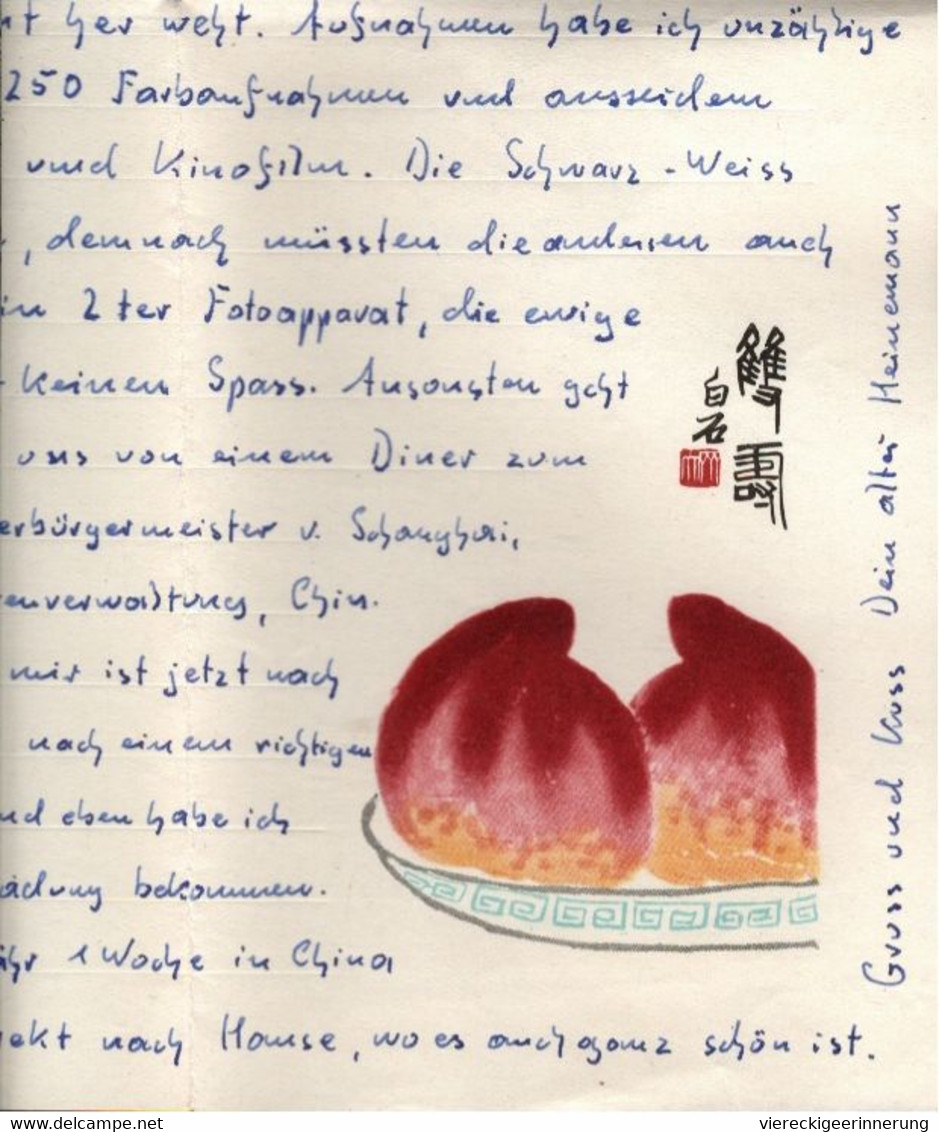 her weht. Aufnahmen habe ich unzählige
250 Farbaufnahmen und ausseidem
und Kinofilm. Die Schwarz-Weiss
, demnach müssten die anderen auch
in 2ter Fotoapparat, die ewige
keinen Spass. Ansonsten geht
uns von einem Diner zum
erbürgermeister v. Schanghai,
enverwaltung, Chin.
mir ist jetzt nach
nach einem richtigen
nd eben habe ich
ladung bekommen.
ähr 1 Woche in China
ekt nach Hause, wo es auch ganz schön ist.
Gruss und Kuss Dein alter Heinemann
雙壽
白石
www.delcampe.net
viereckigeerinnerung